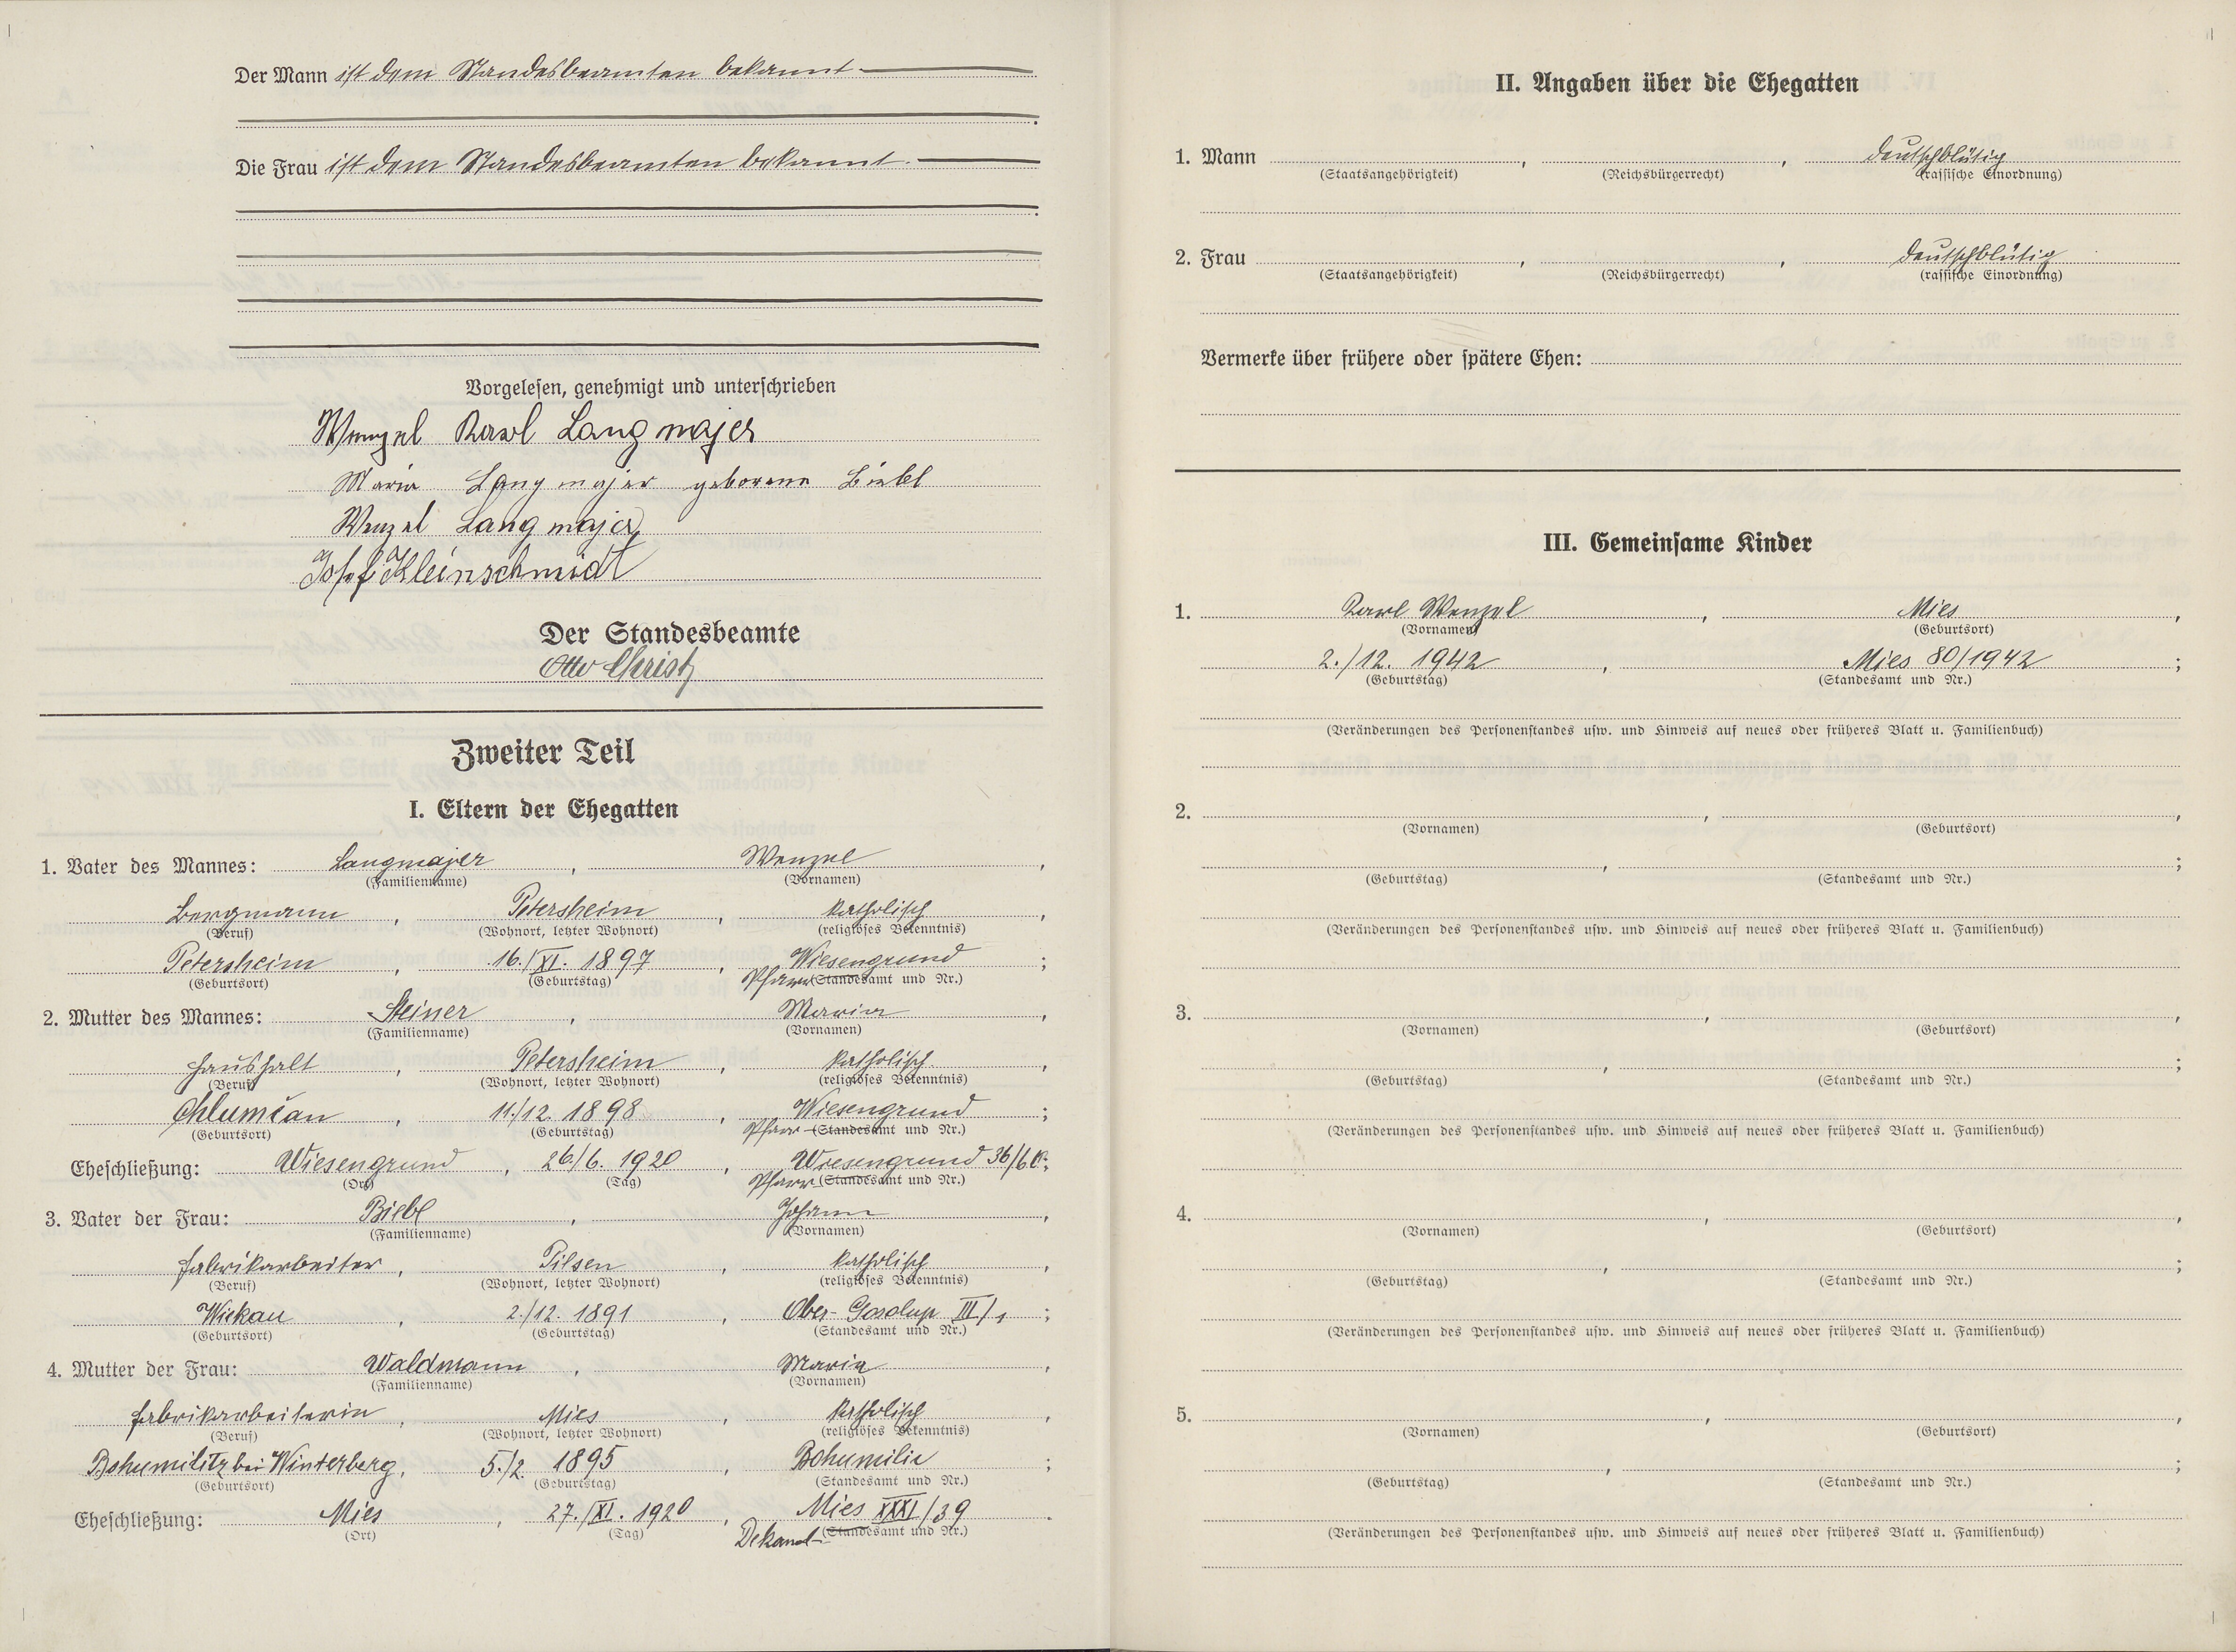 Der Mann ist dem Standesbeamten bekannt
Die Frau ist dem Standesbeamten bekannt.
Vorgelesen, genehmigt und unterschrieben
Wenzel Karl Langmajer
Maria Langmajer geborene Biebl
Wenzel Langmajer
Josef Kleinschmidt
Der Standesbeamte
Otto Christ
Zweiter Teil
I. Eltern der Ehegatten
1. Vater des Mannes: Langmajer, Wenzel,
(Familienname) (Vornamen)
Bergmann, Petersheim, katholisch,
(Beruf) (Wohnort, letzter Wohnort) (religiöses Bekenntnis)
Petersheim, 16./XI. 1897, Wiesengrund;
(Geburtsort) (Geburtstag) Pfarr (Standesamt und Nr.)
2. Mutter des Mannes: Steiner, Maria,
(Familienname) (Vornamen)
Haushalt, Petersheim, katholisch,
(Beruf) (Wohnort, letzter Wohnort) (religiöses Bekenntnis)
Chlumčan, 11./12. 1898, Wiesengrund;
(Geburtsort) (Geburtstag) Pfarr (Standesamt und Nr.)
Eheschließung: Wiesengrund, 26./6. 1920, Wiesengrund 36/6
(Ort) (Tag) Pfarr (Standesamt und Nr.)
3. Vater der Frau: Biebl, Johann,
(Familienname) (Vornamen)
Fabrikarbeiter, Pilsen, katholisch,
(Beruf) (Wohnort, letzter Wohnort) (religiöses Bekenntnis)
Wickau, 2./12. 1891, Ober-Gosolup III/1;
(Geburtsort) (Geburtstag) (Standesamt und Nr.)
4. Mutter der Frau: Waldmann, Maria,
(Familienname) (Vornamen)
Fabrikarbeiterin, Mies, katholisch,
(Beruf) (Wohnort, letzter Wohnort) (religiöses Bekenntnis)
Bohumilitz bei Winterberg, 5./2. 1895, Bohumilic;
(Geburtsort) (Geburtstag) (Standesamt und Nr.)
Eheschließung: Mies, 27./XI. 1920, Mies XXXI/39.
(Ort) (Tag) Dekanal- (Standesamt und Nr.)
II. Angaben über die Ehegatten
1. Mann , , deutschblütig
(Staatsangehörigkeit) (Reichsbürgerrecht) (rassische Einordnung)
2. Frau , , deutschblütig
(Staatsangehörigkeit) (Reichsbürgerrecht) (rassische Einordnung)
Vermerke über frühere oder spätere Ehen:
III. Gemeinsame Kinder
1. Karl Wenzel, Mies,
(Vornamen) (Geburtsort)
2./12. 1942, Mies 80/1942;
(Geburtstag) (Standesamt und Nr.)
(Veränderungen des Personenstandes usw. und Hinweis auf neues oder früheres Blatt u. Familienbuch)
2. , ,
(Vornamen) (Geburtsort)
, ;
(Geburtstag) (Standesamt und Nr.)
(Veränderungen des Personenstandes usw. und Hinweis auf neues oder früheres Blatt u. Familienbuch)
3. , ,
(Vornamen) (Geburtsort)
, ;
(Geburtstag) (Standesamt und Nr.)
(Veränderungen des Personenstandes usw. und Hinweis auf neues oder früheres Blatt u. Familienbuch)
4. , ,
(Vornamen) (Geburtsort)
, ;
(Geburtstag) (Standesamt und Nr.)
(Veränderungen des Personenstandes usw. und Hinweis auf neues oder früheres Blatt u. Familienbuch)
5. , ,
(Vornamen) (Geburtsort)
, ;
(Geburtstag) (Standesamt und Nr.)
(Veränderungen des Personenstandes usw. und Hinweis auf neues oder früheres Blatt u. Familienbuch)